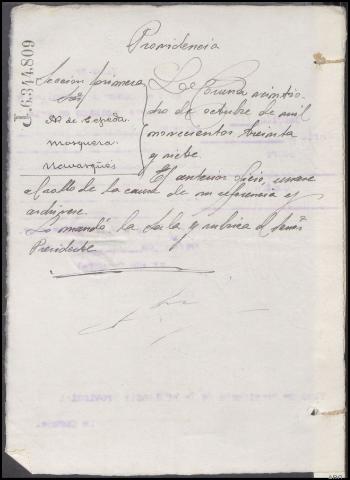 J.6.344.809
Providencia
Seccion primera
Srs.
A. de Cepeda.
Mosquera.
Navarques
La Coruna veintio
cho de octubre de mil
novecientos treinta
y siete.
El anterior oficio, unase
al rollo de la causa de su referencia y
archivese.
Lo mandó la Sala y rubrica el Señor
Presidente